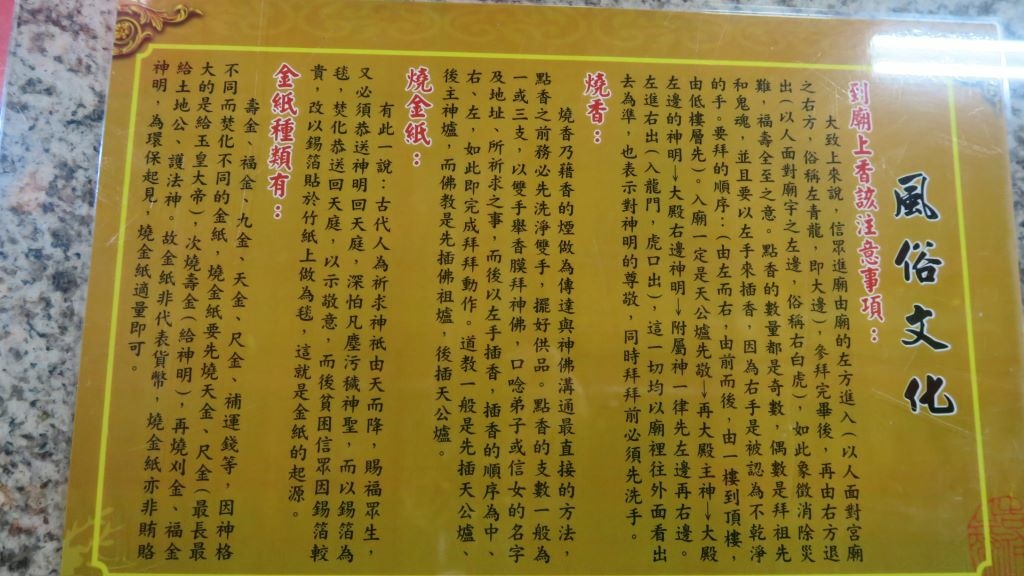 風俗文化
到廟上香該注意事項：
大致上來說，信眾進廟由廟的左方進入（以人面對宮廟
之右方，俗稱左青龍，即大邊），參拜完畢後，再由右方退
出（以人面對廟宇之左邊，俗稱右白虎），如此象徵消除災
難，福壽全至之意。點香的數量都是奇數，偶數是拜祖先
和鬼魂，並且要以左手來插香，因為右手是被認為不乾淨
的手。要拜的順序：（由左而右，由前而後，由一樓到頂樓，
由低樓層先）。入廟一定是天公爐先敬→再大殿主神→大殿
左邊的神明→大殿右邊神明→附屬神一律先左邊再右邊。
左進右出（入龍門，虎口出），這一切均以廟裡往外面看出
去為準，也表示對神明的尊敬，同時拜拜前必須先洗手。
燒香：
燒香乃藉香的煙做為傳達與神佛溝通最直接的方法，
點香之前務必先洗淨雙手，擺好供品。點香的支數一般為
一或三支，以雙手舉香膜拜神佛，口唸弟子或信女的名字
及地址、所祈求之事，而後以左手插香，插香的順序為中、
右、左，如此即完成拜拜動作。道教一般是先插天公爐、
後主神爐，而佛教是先插佛祖爐，後插天公爐。
燒金紙：
有此一說：古代人為祈求神祇由天而降，賜福眾生，
又必須恭送神明回天庭，深怕凡塵污穢神聖，而以錫箔為
毯，焚化恭送回天庭，以示敬意，而後貧困信眾因錫箔較
貴，改以錫箔貼於竹紙上做為毯，這就是金紙的起源。
金紙種類有：
壽金、福金、九金、天金、尺金、補運錢等，因神格
不同而焚化不同的金紙，燒金紙要先燒天金、尺金（最長最
大的是給玉皇大帝），次燒壽金（給神明），再燒刈金、福金
給土地公、護法神。故金紙非代表貨幣，燒金紙亦非賄賂
神明，為環保起見，燒金紙適量即可。